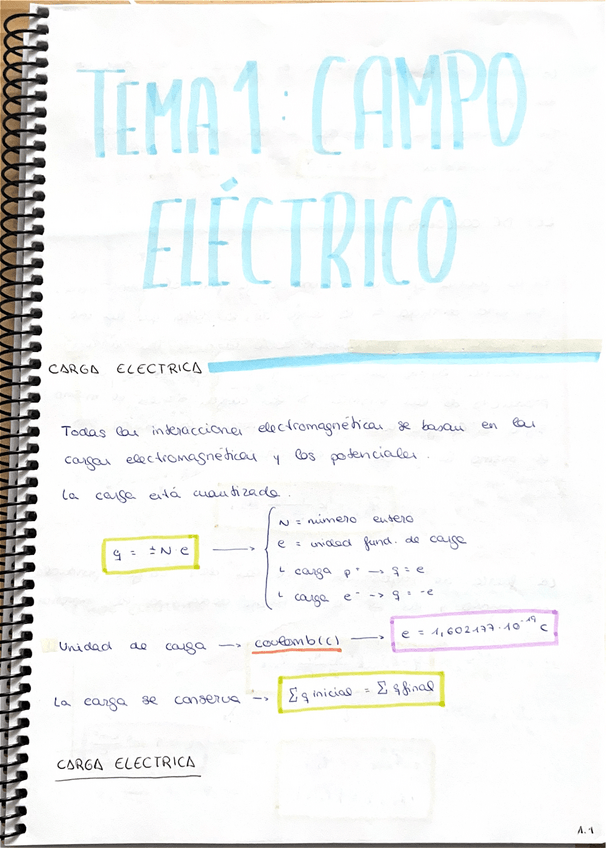 TEMA 1: CAMPO
ELÉCTRICO
CARGA ELECTRICA
Todas las interacciones electromagnéticas se basan en las
cargas electromagnéticas y los potenciales.
La carga está cuantizada.
q = ±N e → N = número entero
e = unidad fund. de carga
↳ carga p⁺ → q = e
↳ carga e⁻ → q = -e
Unidad de carga → coulomb (C) → e = 1,602177·10⁻¹⁹ C
La carga se conserva → Σ q inicial = Σ q final
CARGA ELECTRICA
A.1